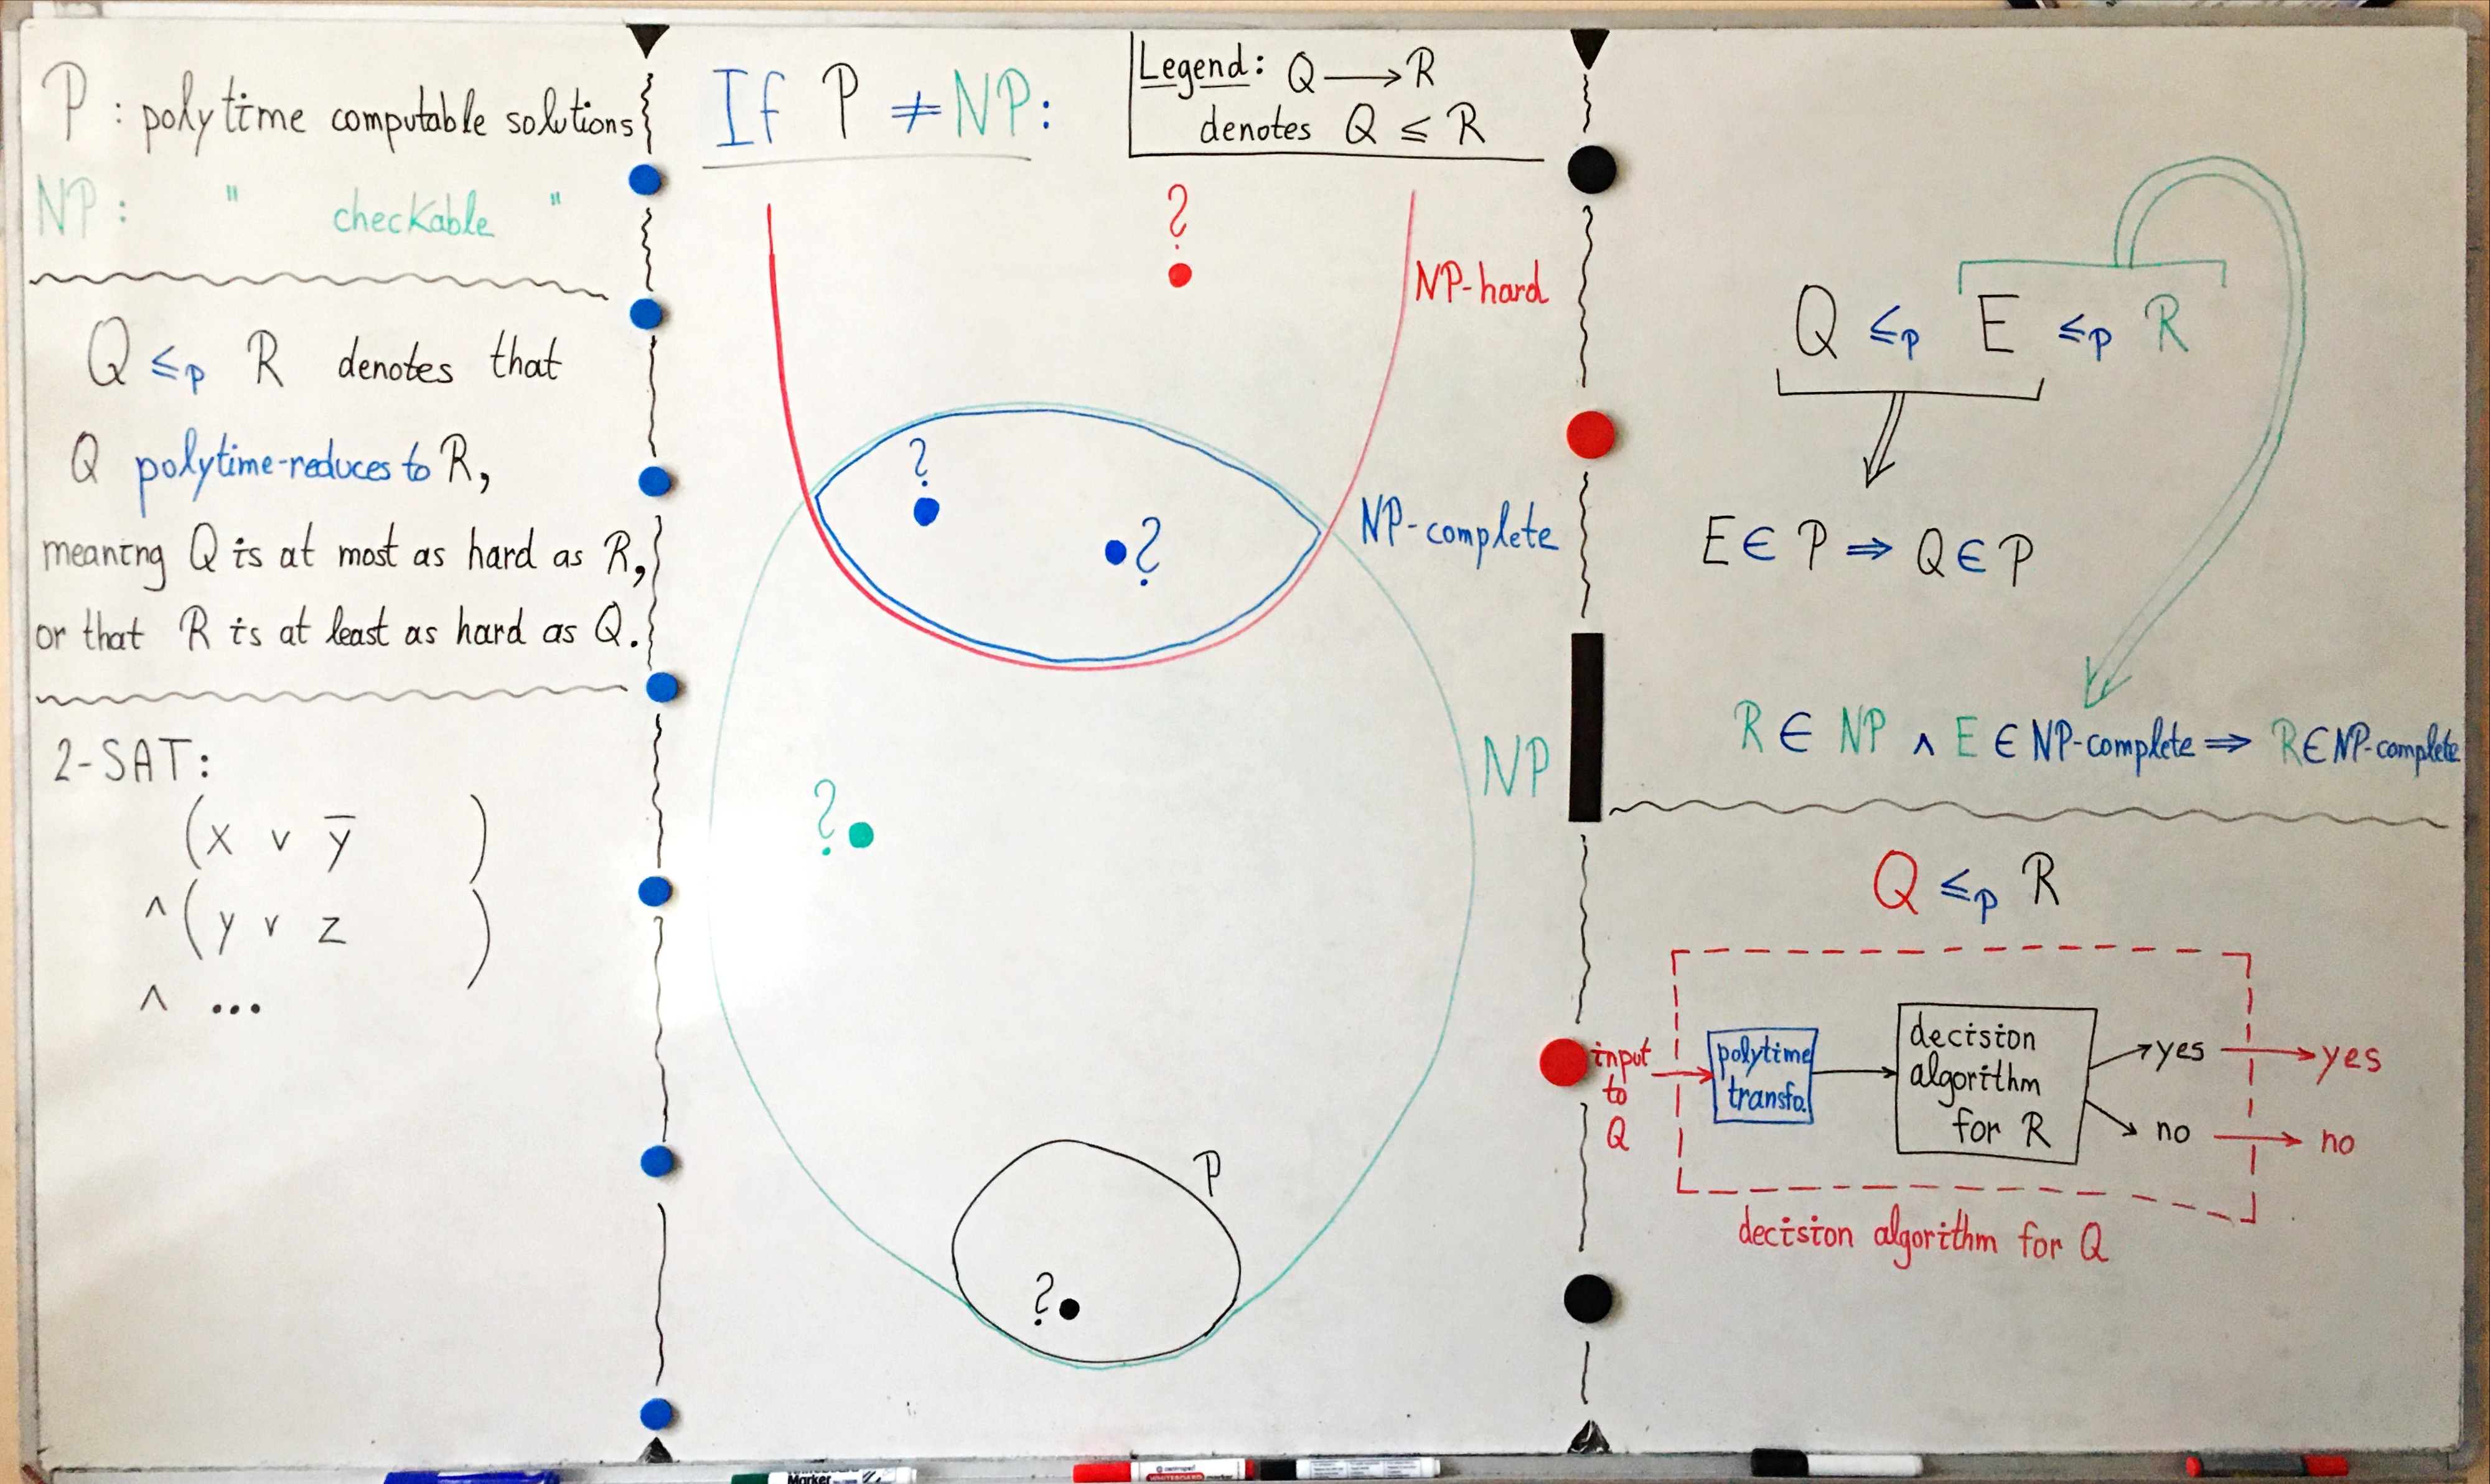 P : polytime computable solutions
NP : " checkable "
Q ≤p R denotes that
Q polytime-reduces to R,
meaning Q is at most as hard as R,
or that R is at least as hard as Q.
2-SAT:
(x ∨ ȳ )
∧ (y ∨ z )
∧ ...
If P ≠ NP:
Legend: Q ⟶ R
denotes Q ≤ R
?
NP-hard
?
?
NP-complete
NP
?
P
?
Q ≤p E ≤p R
E ∈ P ⇒ Q ∈ P
R ∈ NP ∧ E ∈ NP-complete ⇒ R ∈ NP-complete
Q ≤p R
input
to
Q
polytime
transfo.
decision
algorithm
for R
yes
yes
no
no
decision algorithm for Q
Marker